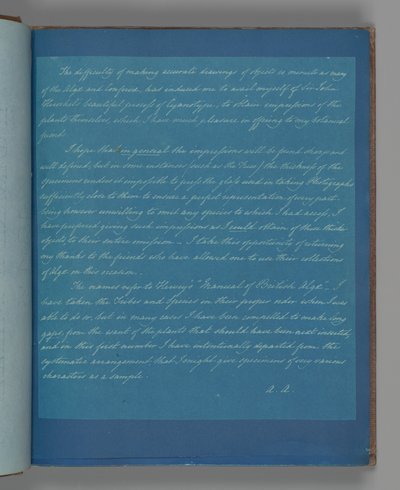 The difficulty of making accurate drawings of objects as minute as many
of the Algæ and Confervæ, has induced me to avail myself of Sir John
Herschel's beautiful process of Cyanotype, to obtain impressions of the
plants themselves, which I have much pleasure in offering to my botanical
friends.
I hope that in general the impressions will be found sharp and
well defined, but in some instances (such as the Fuci) the thickness of the
specimens renders it impossible to press the glass used in taking Photographs
sufficiently close to them to ensure a perfect representation of every part.
Being however unwilling to omit any species to which I had access, I
have preferred giving such impressions as I could obtain of these thick
objects to their entire omission - I take this opportunity of returning
my thanks to the friends who have allowed me to use their collections
of Algæ on this occasion.
The names refer to Harvey's "Manual of British Algæ". I
have taken the Tribes and Species in their proper order when I was
able to do so, but in many cases I have been compelled to make long
gaps, from the want of the plants that should have been next inserted,
and in this first number I have intentionally departed from the
systematic arrangement that I might give specimens of very various
characters as a sample.
A. A.